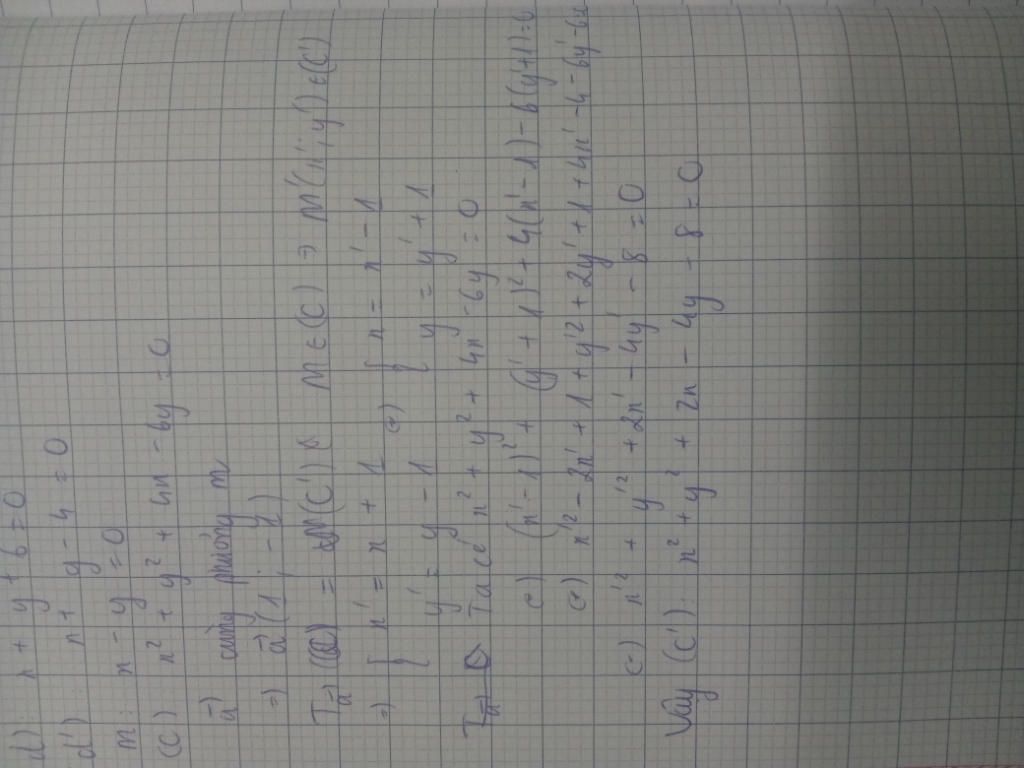 d): x + y + 6 = 0
d') x + y - 4 = 0
m: x - y = 0
(C) x² + y² + 4x - 6y = 0
a⃗ cùng phương m
=) a⃗ (1; -1)
Ta⃗ (C) = (C') M ∈ (C) => M'(x'; y') ∈ (C')
=) { x' = x + 1 (=) { x = x' - 1
{ y' = y - 1 { y = y' + 1
Ta có x² + y² + 4x - 6y = 0
(=) (x' - 1)² + (y' + 1)² + 4(x' - 1) - 6(y' + 1) = 0
(=) x'² - 2x' + 1 + y'² + 2y' + 1 + 4x' - 4 - 6y' - 6
(=) x'² + y'² + 2x' - 4y' - 8 = 0
Vậy (C'): x² + y² + 2x - 4y - 8 = 0